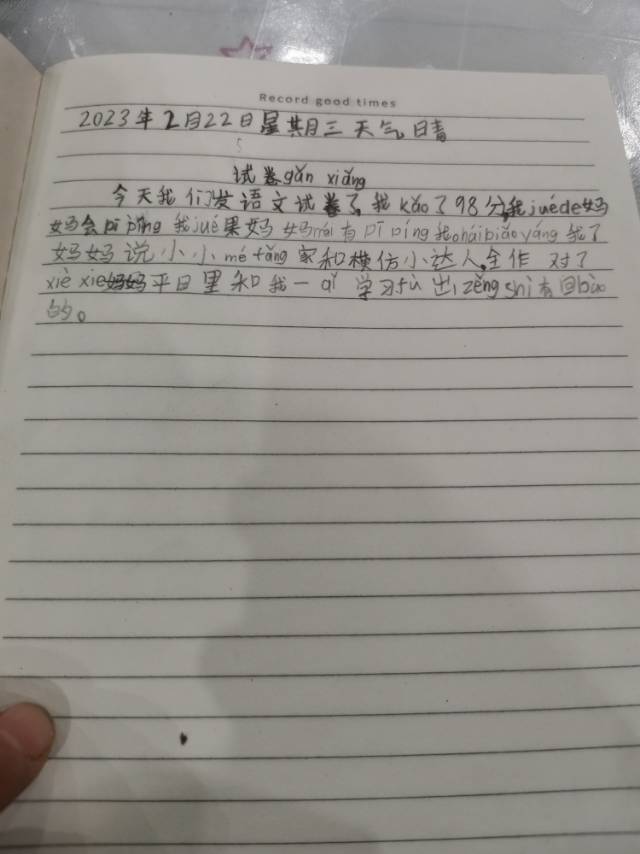 Record good times
2023年2月22日星期三天气晴
试卷gǎn xiǎng
今天我们发语文试卷了,我kǎo了98分,我juéde妈
妈会pī píng我jué果妈妈méi有pī píng我háibiǎoyáng我了
妈妈说小小mé fǎng家和模仿小达人全作对了
xiè xie妈妈平日里和我一qǐ学习fù出zěng shì有回bào
的。